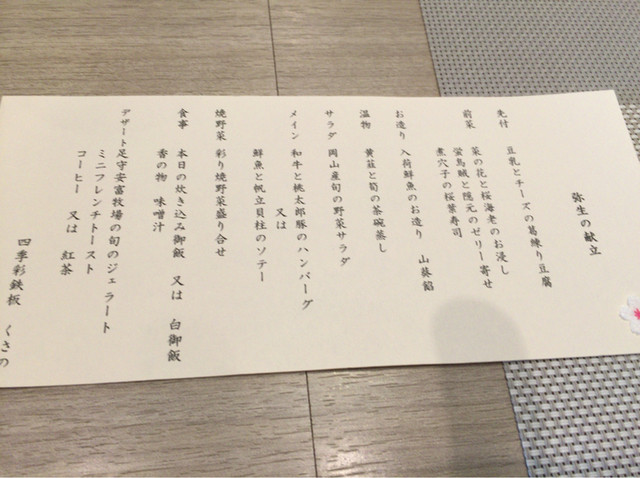 弥生の献立
先付　豆乳とチーズの葛練り豆腐
前菜　菜の花と桜海老のお浸し
蛍烏賊と隠元のゼリー寄せ
煮穴子の桜葉寿司
お造り　入荷鮮魚のお造り　山葵餡
温物　黄韮と筍の茶碗蒸し
サラダ　岡山産旬の野菜サラダ
メイン　和牛と桃太郎豚のハンバーグ
又は
鮮魚と帆立貝柱のソテー
焼野菜　彩り焼野菜盛り合せ
食事　本日の炊き込み御飯　又は　白御飯
香の物　味噌汁
デザート　足守安富牧場の旬のジェラート
ミニフレンチトースト
コーヒー　又は　紅茶
四季彩鉄板　くさの